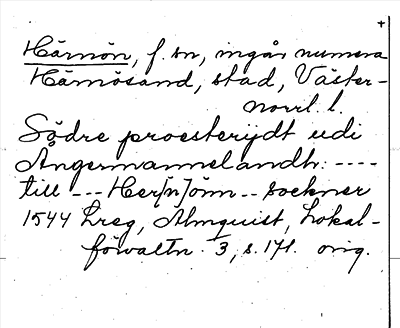 Härnön, f. sn, ingår numera
Härnösand, stad, Väster-
norrl. l.
Södre proesterijdt udi
Ångermannelandh: ----
till --- Her[n]önn -- sockner
1544 Lreg, Almquist, Lokal-
förvaltn. 3, s. 171. orig.